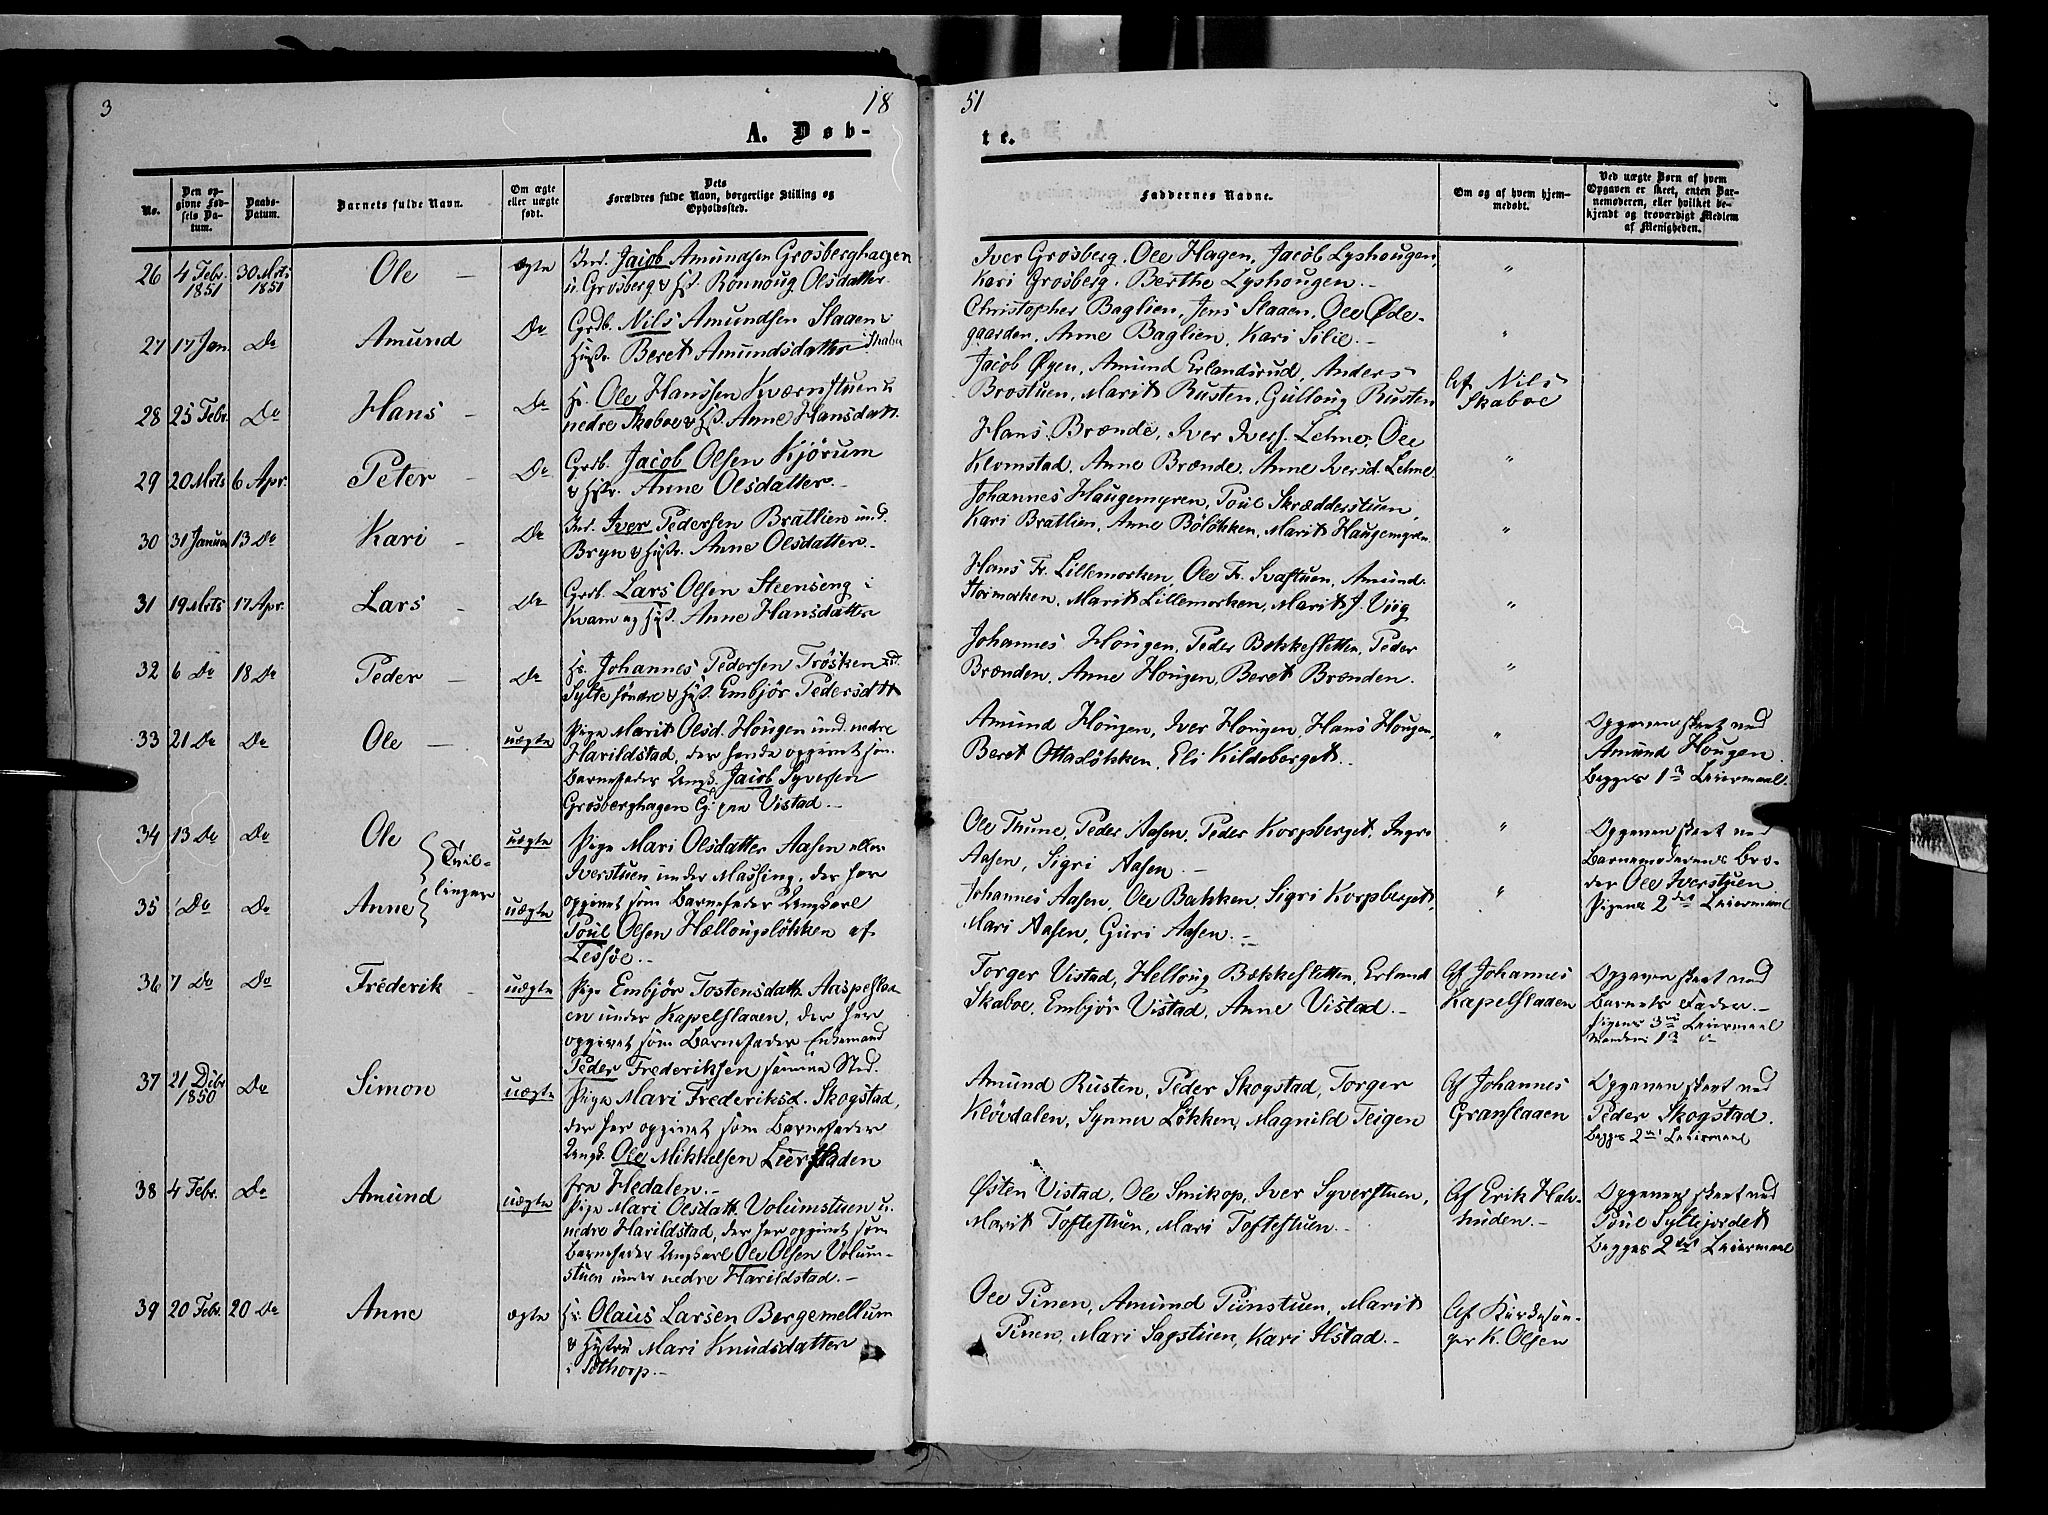 3
18
51
A. Døb-
te.
No.
Den op-
givne Fød-
sels Da-
tum.
Daabs-
Datum.
Barnets fulde Navn.
Om ægte
eller uægte
født.
Dets
Forældres fulde Navn, borgerlige Stilling og
Opholdssted.
Faddernes Navne.
Om og af hvem hjem-
medøbt.
Ved uægte Børn af hvem
Opgaven er skeet, enten Bar-
nemoderen, eller hvilket be-
kjendt og troværdigt Medlem
af Menigheden.
26 4 Febr. 1851 30 Mrts 1851 Ole — ægte
Ind. Jacob Amundsen Grosberghagen
u. Grosberg & Hst. Rønnoug Olsdatter.
Iver Grosberg. Ole Hagen, Jacob Lyshougen,
Kari Grosberg. Berthe Lyshougen. —
"
27 17 Jan. Do Amund Do
Grdb. Nils Amundsen Slaaen &
Hustr. Beret Amundsdatter i Skabu
Christopher Baglien, Jens Slaaen, Ole Øde-
gaarden, Anne Baglien, Kari Silie. —
"
28 25 Febr. Do Hans — Do
Hs. Ole Hanssen Kværnstuen u
nedre Skaboe & Hst. Anne Hansdatt.
Jacob Øyen, Amund Erlandsrud, Anders
Brostuen, Marit Rusten, Gulloug Rusten
Af Nils
Skaboe
29 20 Mrts 6 Apr. Peter — Do
Grdb. Jacob Olsen Kjørum
& Hstr. Anne Olsdatter. —
Hans Brænde, Iver Ivers. Lehne, Ole
Klomstad, Anne Brænde. Anne Iversd. Lehne.
"
30 31 Januar 13 Do Kari — Do
Ind. Iver Pedersen Bratlien und.
Bryn & Hstr. Anne Olsdatter. —
Johannes Haugemyren, Poul Skrædderstuen,
Kari Bratlien, Anne Böløkken, Marit Haugemyren.
"
31 19 Mrts 17 Apr. Lars — Do
Grdb. Lars Olsen Steenseng i
Kvam og Hst. Anne Hansdatter
Hans Fr. Lillemorken, Ole Fr. Svastuen, Amund
Stormorken, Marit Lillemorken, Marit J. Viig
"
32 6 Do 18 Do Peder — Do
Hs. Johannes Pedersen Trösken und.
Sylte söndre & Hst. Embjör Pedersdttr
Johannes Hougen, Peder Bekkesletten, Peder
Brænden, Anne Hougen, Beret Brænden.
"
33 21 Do Do Ole — uægte
Pige Marit Olsd. Hougen und. nedre
Harildstad, der hende opgivet som
Barnefader Ungk. Jacob Syversen
Grosberghagen Gj. paa Vistad. —
Amund Hougen, Iver Hougen, Hans Hougen,
Beret Ottasløkken, Eli Kildeberget. —
"
Opgaven skeet ved
Amund Hougen.
Begges 1ste Leiermaal.
34 13 Do Do Ole uægte
Tvil-
linger
Pige Mari Olsdatter Aasen eller
Iverstuen under Massing, der har
opgivet som Barnefader Ungkarl
Poul Olsen Hællougsløkken af
Lessøe. —
Ole Thune, Peder Aasen, Peder Korpberget, Ingri
Aasen, Sigri Aasen. —
"
Opgaven skeet ved
Barnemoderens Bro-
der Ole Iverstuen.
Pigens 2det Leiermaal
35 Do Do Anne uægte
Johannes Aasen, Ole Bakken, Sigri Korpberget,
Mari Aasen, Guri Aasen. —
"
36 7 Do Do Frederik — uægte
Pige Embjör Tostensdatt. Aaspeslaa
en under Kapelslaaen, der har
opgivet som Barnefader Enkemand
Peder Frederiksen samme Sted.
Torger Vistad, Helloug Bækkesletten, Erland
Skaboe, Embjör Vistad, Anne Vistad. —
Af Johannes
Kapelslaaen
Opgaven skeet ved
Barnets Fader. —
Pigens 3die Leiermaal
Mandens 1ste
37 21 Dcbr 1850 Do Simon uægte
Pige Mari Frederiksd. Skogstad,
der har opgivet som Barnefader
Ungk. Ole Mikkelsen Leerfladen
fra Hedalen. —
Amund Rusten, Peder Skogstad, Torger
Klövdalen, Synner Løkken, Magnild Teigen
Af Johannes
Granslaaen
Opgaven skeet ved
Peder Skogstad.
Begges 2det Leiermaal
38 4 Febr. Do Amund uægte
Pige Mari Olsdatt. Volumstuen u.
nedre Harildstad, der har opgivet som
Barnefader Ungkarl Ole Olsen Volum-
stuen under nedre Harildstad. —
Østen Vistad, Ole Smikop, Iver Syverstuen,
Marit Toftestuen, Mari Toftestuen. —
Af Erik Hal-
huden. —
Opgaven skeet ved
Poul Syltejordet
Begges 2det Leiermaal
39 20 Febr. 20 Do Anne ægte
Hs. Olaus Larsen Bergemellum
& Hustru Mari Knudsdatter
i Sothorp. —
Ole Pinen, Amund Piinstuen, Marit
Pinen, Mari Sagstuen, Kari Ilstad. —
Af Kirkesan-
ger K. Olsen